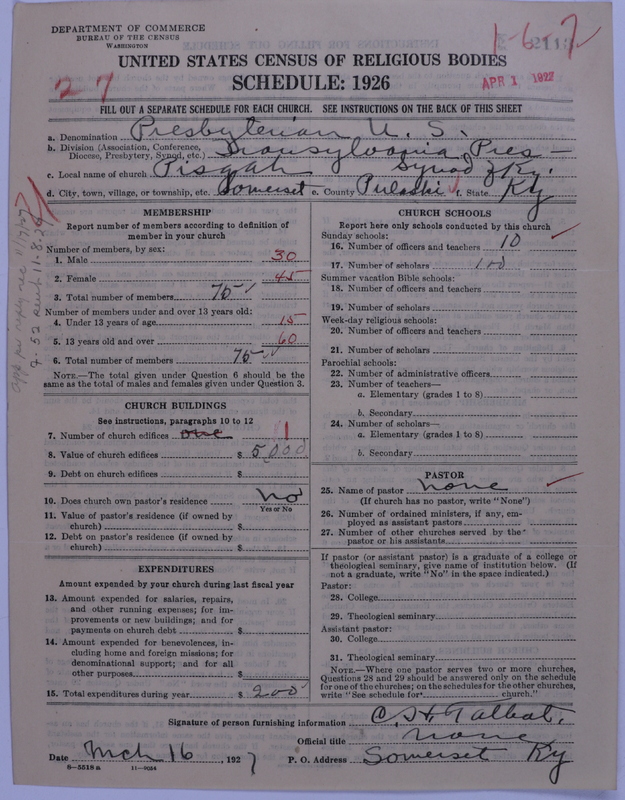 DEPARTMENT OF COMMERCE
BUREAU OF THE CENSUS
WASHINGTON
1-6-7
2113
UNITED STATES CENSUS OF RELIGIOUS BODIES
27
SCHEDULE: 1926
APR 1 1922
FILL OUT A SEPARATE SCHEDULE FOR EACH CHURCH. SEE INSTRUCTIONS ON THE BACK OF THIS SHEET
a. Denomination Presbyterian U. S.
b. Division (Association, Conference, Diocese, Presbytery, Synod, etc.) Transylvania Pres-
Synod of Ky.
c. Local name of church Pisgah
d. City, town, village, or township, etc. Somerset e. County Pulaski f. State Ky
MEMBERSHIP
Report number of members according to definition of
member in your church
Number of members, by sex:
1. Male 30
2. Female 45
3. Total number of members 75
Number of members under and over 13 years old:
4. Under 13 years of age 15
5. 13 years old and over 60
6. Total number of members 75
NOTE.—The total given under Question 6 should be the
same as the total of males and females given under Question 3.
CHURCH BUILDINGS
See instructions, paragraphs 10 to 12
7. Number of church edifices one 1
8. Value of church edifices $ 5,000
9. Debt on church edifices $
10. Does church own pastor's residence No
Yes or No
11. Value of pastor's residence (if owned by
church) $
12. Debt on pastor's residence (if owned by
church) $
EXPENDITURES
Amount expended by your church during last fiscal year
13. Amount expended for salaries, repairs,
and other running expenses; for im-
provements or new buildings; and for
payments on church debt $
14. Amount expended for benevolences, in-
cluding home and foreign missions; for
denominational support; and for all
other purposes $
15. Total expenditures during year $ 200
CHURCH SCHOOLS
Report here only schools conducted by this church
Sunday schools:
16. Number of officers and teachers 10
17. Number of scholars 100
Summer vacation Bible schools:
18. Number of officers and teachers
19. Number of scholars
Week-day religious schools:
20. Number of officers and teachers
21. Number of scholars
Parochial schools:
22. Number of administrative officers
23. Number of teachers—
a. Elementary (grades 1 to 8)
b. Secondary
24. Number of scholars—
a. Elementary (grades 1 to 8)
b. Secondary
PASTOR
25. Name of pastor none
(If church has no pastor, write "None")
26. Number of ordained ministers, if any, em-
ployed as assistant pastors
27. Number of other churches served by the
pastor or his assistants
If pastor (or assistant pastor) is a graduate of a college or
theological seminary, give name of institution below. (If
not a graduate, write "No" in the space indicated.)
Pastor:
28. College
29. Theological seminary
Assistant pastor:
30. College
31. Theological seminary
NOTE.—Where one pastor serves two or more churches,
Questions 28 and 29 should be answered only on the schedule
for one of the churches; on the schedules for the other churches,
write "See schedule for church."
Signature of person furnishing information C. H. Talbot,
Official title none
Date Mch 16, 1927 P. O. Address Somerset Ky
6—5518 a 11—9054